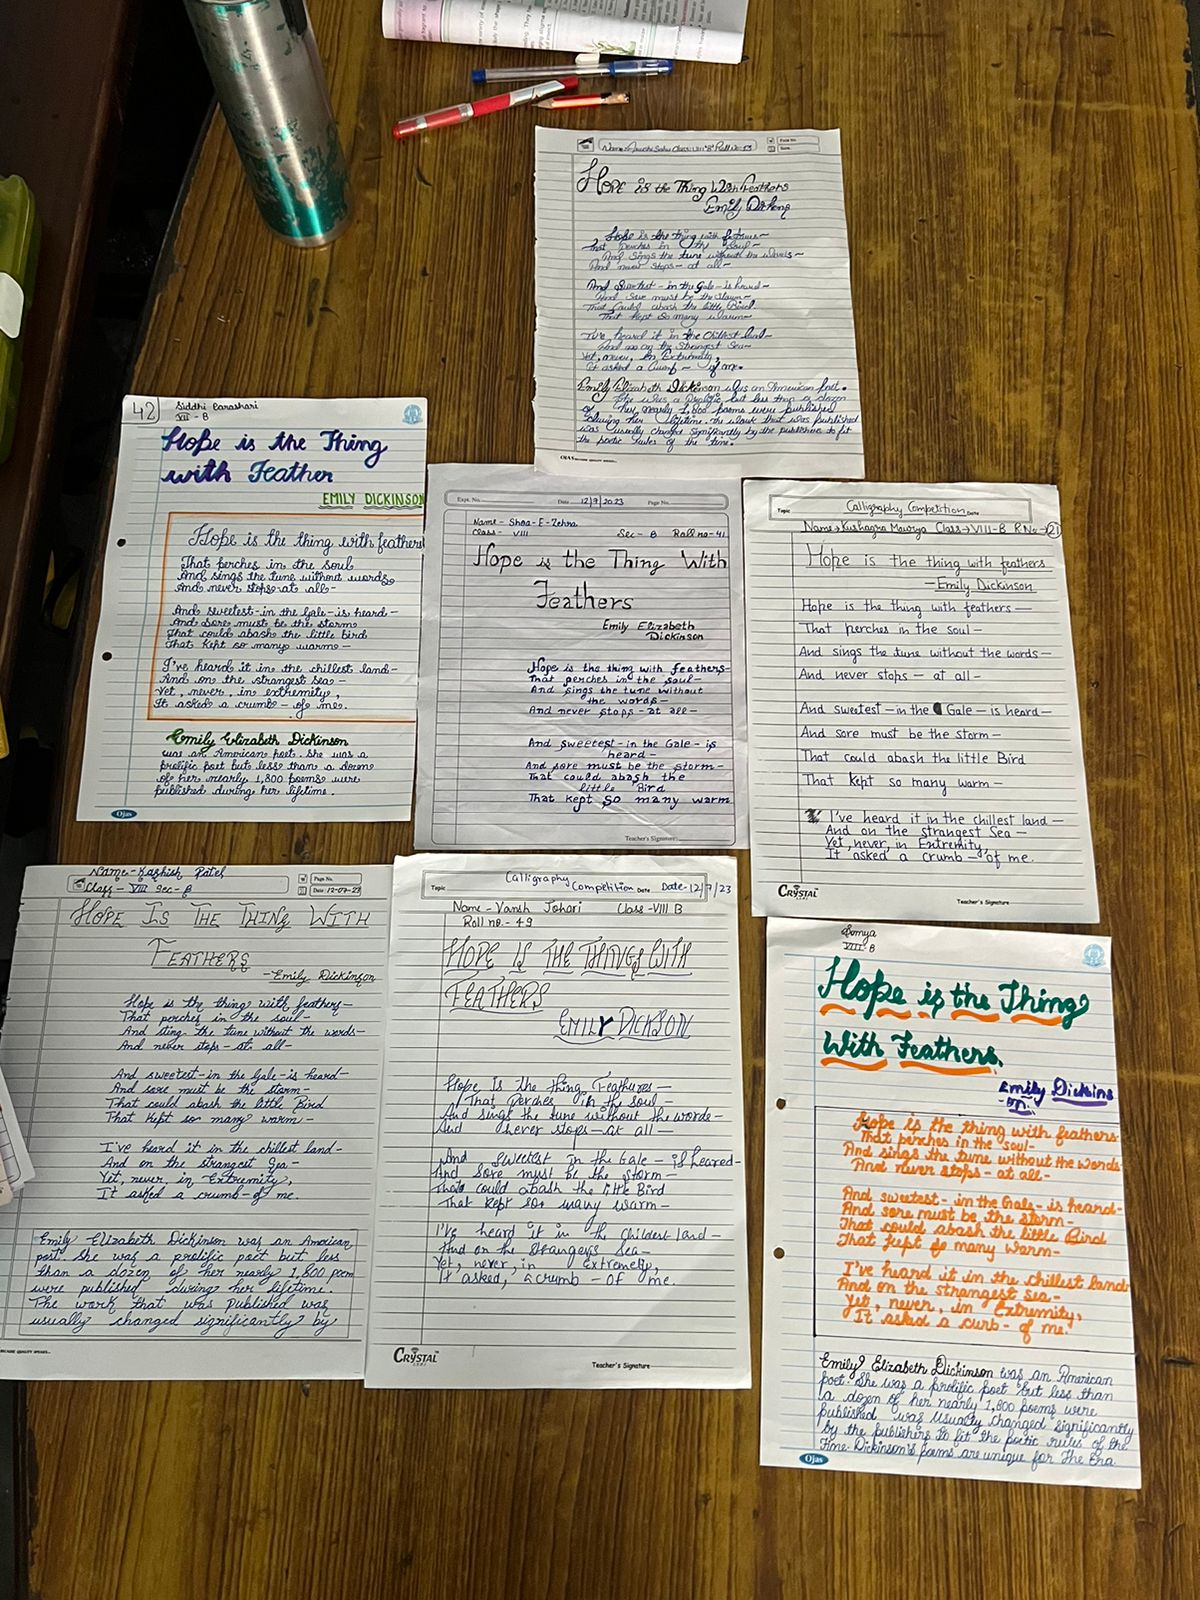 Class: VIII "B" Roll No-53
Page No.
Date.
Hope is the Thing With Feathers
Emily Dickens
Hope is the thing with
That perches in thy Soul~
And Sings the tune without the Words~
And never stops~ at all~
And Sweetest - in the Gale - is heard~
And Sore must be the Storm~
That Could abash the little Bird
That kept So many Warm~
I've heard it in the Chillest land~
And on the Strangest Sea~
Yet, never, in Extremity,
It asked a Crumb ~ of me.
Emily Elizabeth Dickinson was an American Poet.
She was a Prolific but less than a dozen
of her nearly 1,800 poems were published
during her lifetime. The work that was published
was usually changed significantly by the publishers to fit
the poetic rules of the time.
OJAS
42
Siddhi Parashari
VIII - B
Hope is the Thing
with Feather
EMILY DICKINSON
Hope is the thing with feathers
That perches in the soul
And sings the tune without words
And never stops-at all-
And sweetest-in the Gale-is heard-
And sore must be the storm
That could abash the little bird
That kept so many warm-
I've heard it in the chillest land-
And on the strangest sea-
Yet, never, in extremity,
It asked a crumb - of me.
Emily Elizabeth Dickinson
was an American poet. She was a
prolific poet but less than a dozen
of her nearly 1,800 poems were
published during her lifetime.
Ojas
Expt. No.
Date 12/7/2023
Page No.
Name- Shoa-E-Zehra
Class- VIII Sec- B Roll no-41
Hope is the Thing With
Feathers
Emily Elizabeth
Dickinson
Hope is the thing with feathers-
That perches in the soul-
And sings the tune without
the words-
And never stops-at all-
And sweetest-in the Gale-is
heard-
And sore must be the storm-
That could abash the
little Bird
That kept so many warm
Teacher's Signature:
Topic Calligraphy Competition Date
Name→Kushagra Maurya Class→VIII-B R.No.→21
Hope is the thing with feathers
—Emily Dickinson
Hope is the thing with feathers—
That perches in the soul—
And sings the tune without the words—
And never stops— at all—
And sweetest—in the Gale—is heard—
And sore must be the storm—
That could abash the little Bird
That kept so many warm—
I've heard it in the chillest land—
And on the strangest Sea—
Yet, never, in Extremity,
It asked a crumb — of me.
CRYSTAL
Teacher's Signature
Name-Kashish Patel
Class- VIII Sec- B
Page No.
Date: 12-07-23
HOPE IS THE THING WITH
FEATHERS
-Emily Dickinson
Hope is the thing with feathers-
That perches in the soul-
And sting the tune without the words-
And never stops-at all-
And sweetest-in the Gale-is heard-
And sore must be the storm-
That could abash the little Bird
That kept so many warm-
I've heard it in the chillest land-
And on the strangest Sea-
Yet, never, in Extremity,
It asked a crumb-of me.
Emily Elizabeth Dickinson was an American
poet. She was a prolific poet but less
than a dozen of her nearly 1,800 poem
were published during her lifetime.
The work that was published was
usually changed significantly by
Topic Calligraphy Competition Date Date-12/7/23
Name-Vansh Johari Class-VIII B
Roll no.-49
HOPE IS THE THINGS WITH
FEATHERS
EMILY DICKSON
Hope Is the thing Features—
That Perches in the soul—
And sings the tune without the words-
And never stops—at all—
And Sweetest In the Gale—is heared-
And Sore must be the storm—
Thats could abash the little Bird
That kept sor many warm—
I've heard it in the childest land—
And on the Strangers Sea—
Yet, never, in Extremely,
It asked, a crumb — of me.
CRYSTAL
Teacher's Signature
Somya
VIII-B
Hope is the Thing
With Feathers.
Emily Dickins
-on.
Hope is the thing with feathers-
That perches in the soul-
And sings the tune without the words-
And never stops-at all-
And sweetest-in the Gale-is heard-
And sore must be the storm-
That could abash the little Bird
That kept so many warm-
I've heard it in the chillest land-
And on the strangest sea-
Yet, never, in Extremity,
It asked a curb- of me.
Emily Elizabeth Dickinson was an American
poet. She was a prolific poet but less than
a dozen of her nearly 1,800 poems were
published was usually changed significantly
by the publishers to fit the poetic rules of the
time. Dickinson's poems are unique for the Era
Ojas